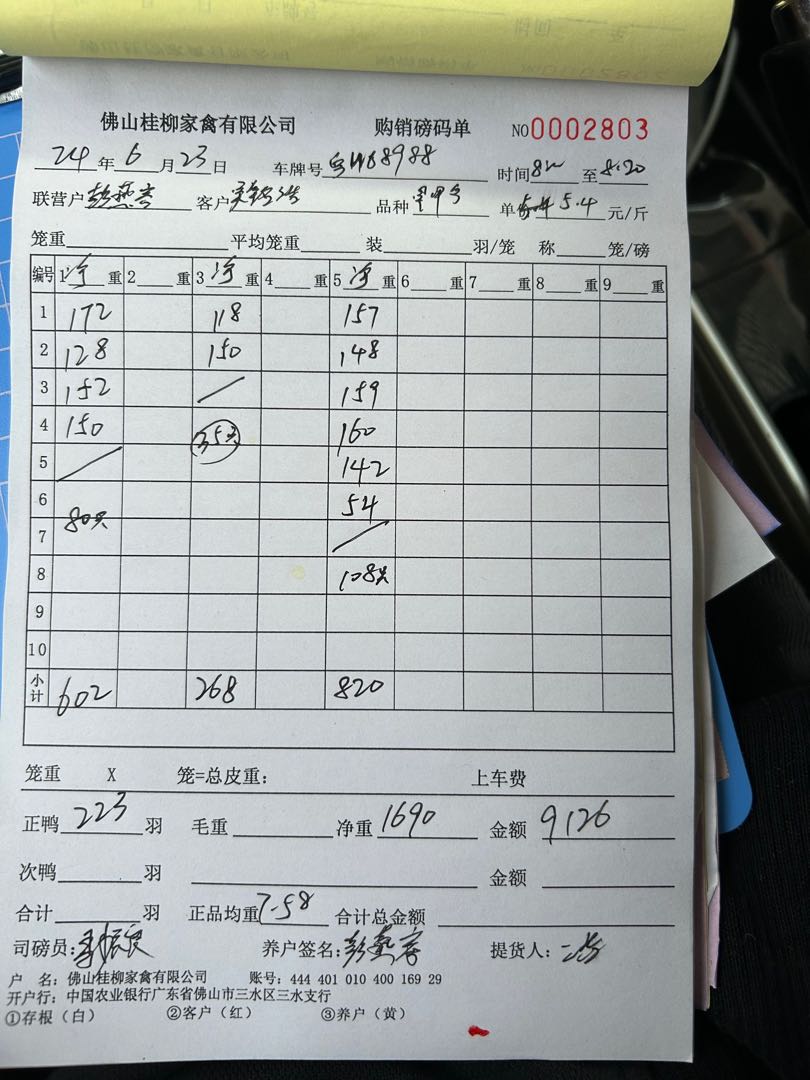 佛山桂柳家禽有限公司 购销磅码单 NO0002803
24年6月23日 车牌号 8988 时间 至8:20
联营户 客户 品种 单 5.4 元/斤
笼重 平均笼重 装 羽/笼 称 笼/磅
编号 1净重 2 重 3净重 4 重 5净重 6 重 7 重 8 重 9 重
1 172 118 157
2 128 150 148
3 152 / 159
4 150 35只 160
5 / 142
6 80只 54
7 /
8 108只
9
10
小计 602 268 820
笼重 X 笼=总皮重: 上车费
正鸭223羽 毛重 净重1690 金额9126
次鸭 羽 金额
合计 羽 正品均重7.58 合计总金额
司磅员: 养户签名: 提货人:
户 名: 佛山桂柳家禽有限公司 账号: 444 401 010 400 169 29
开户行: 中国农业银行广东省佛山市三水区三水支行
①存根(白) ②客户(红) ③养户(黄)